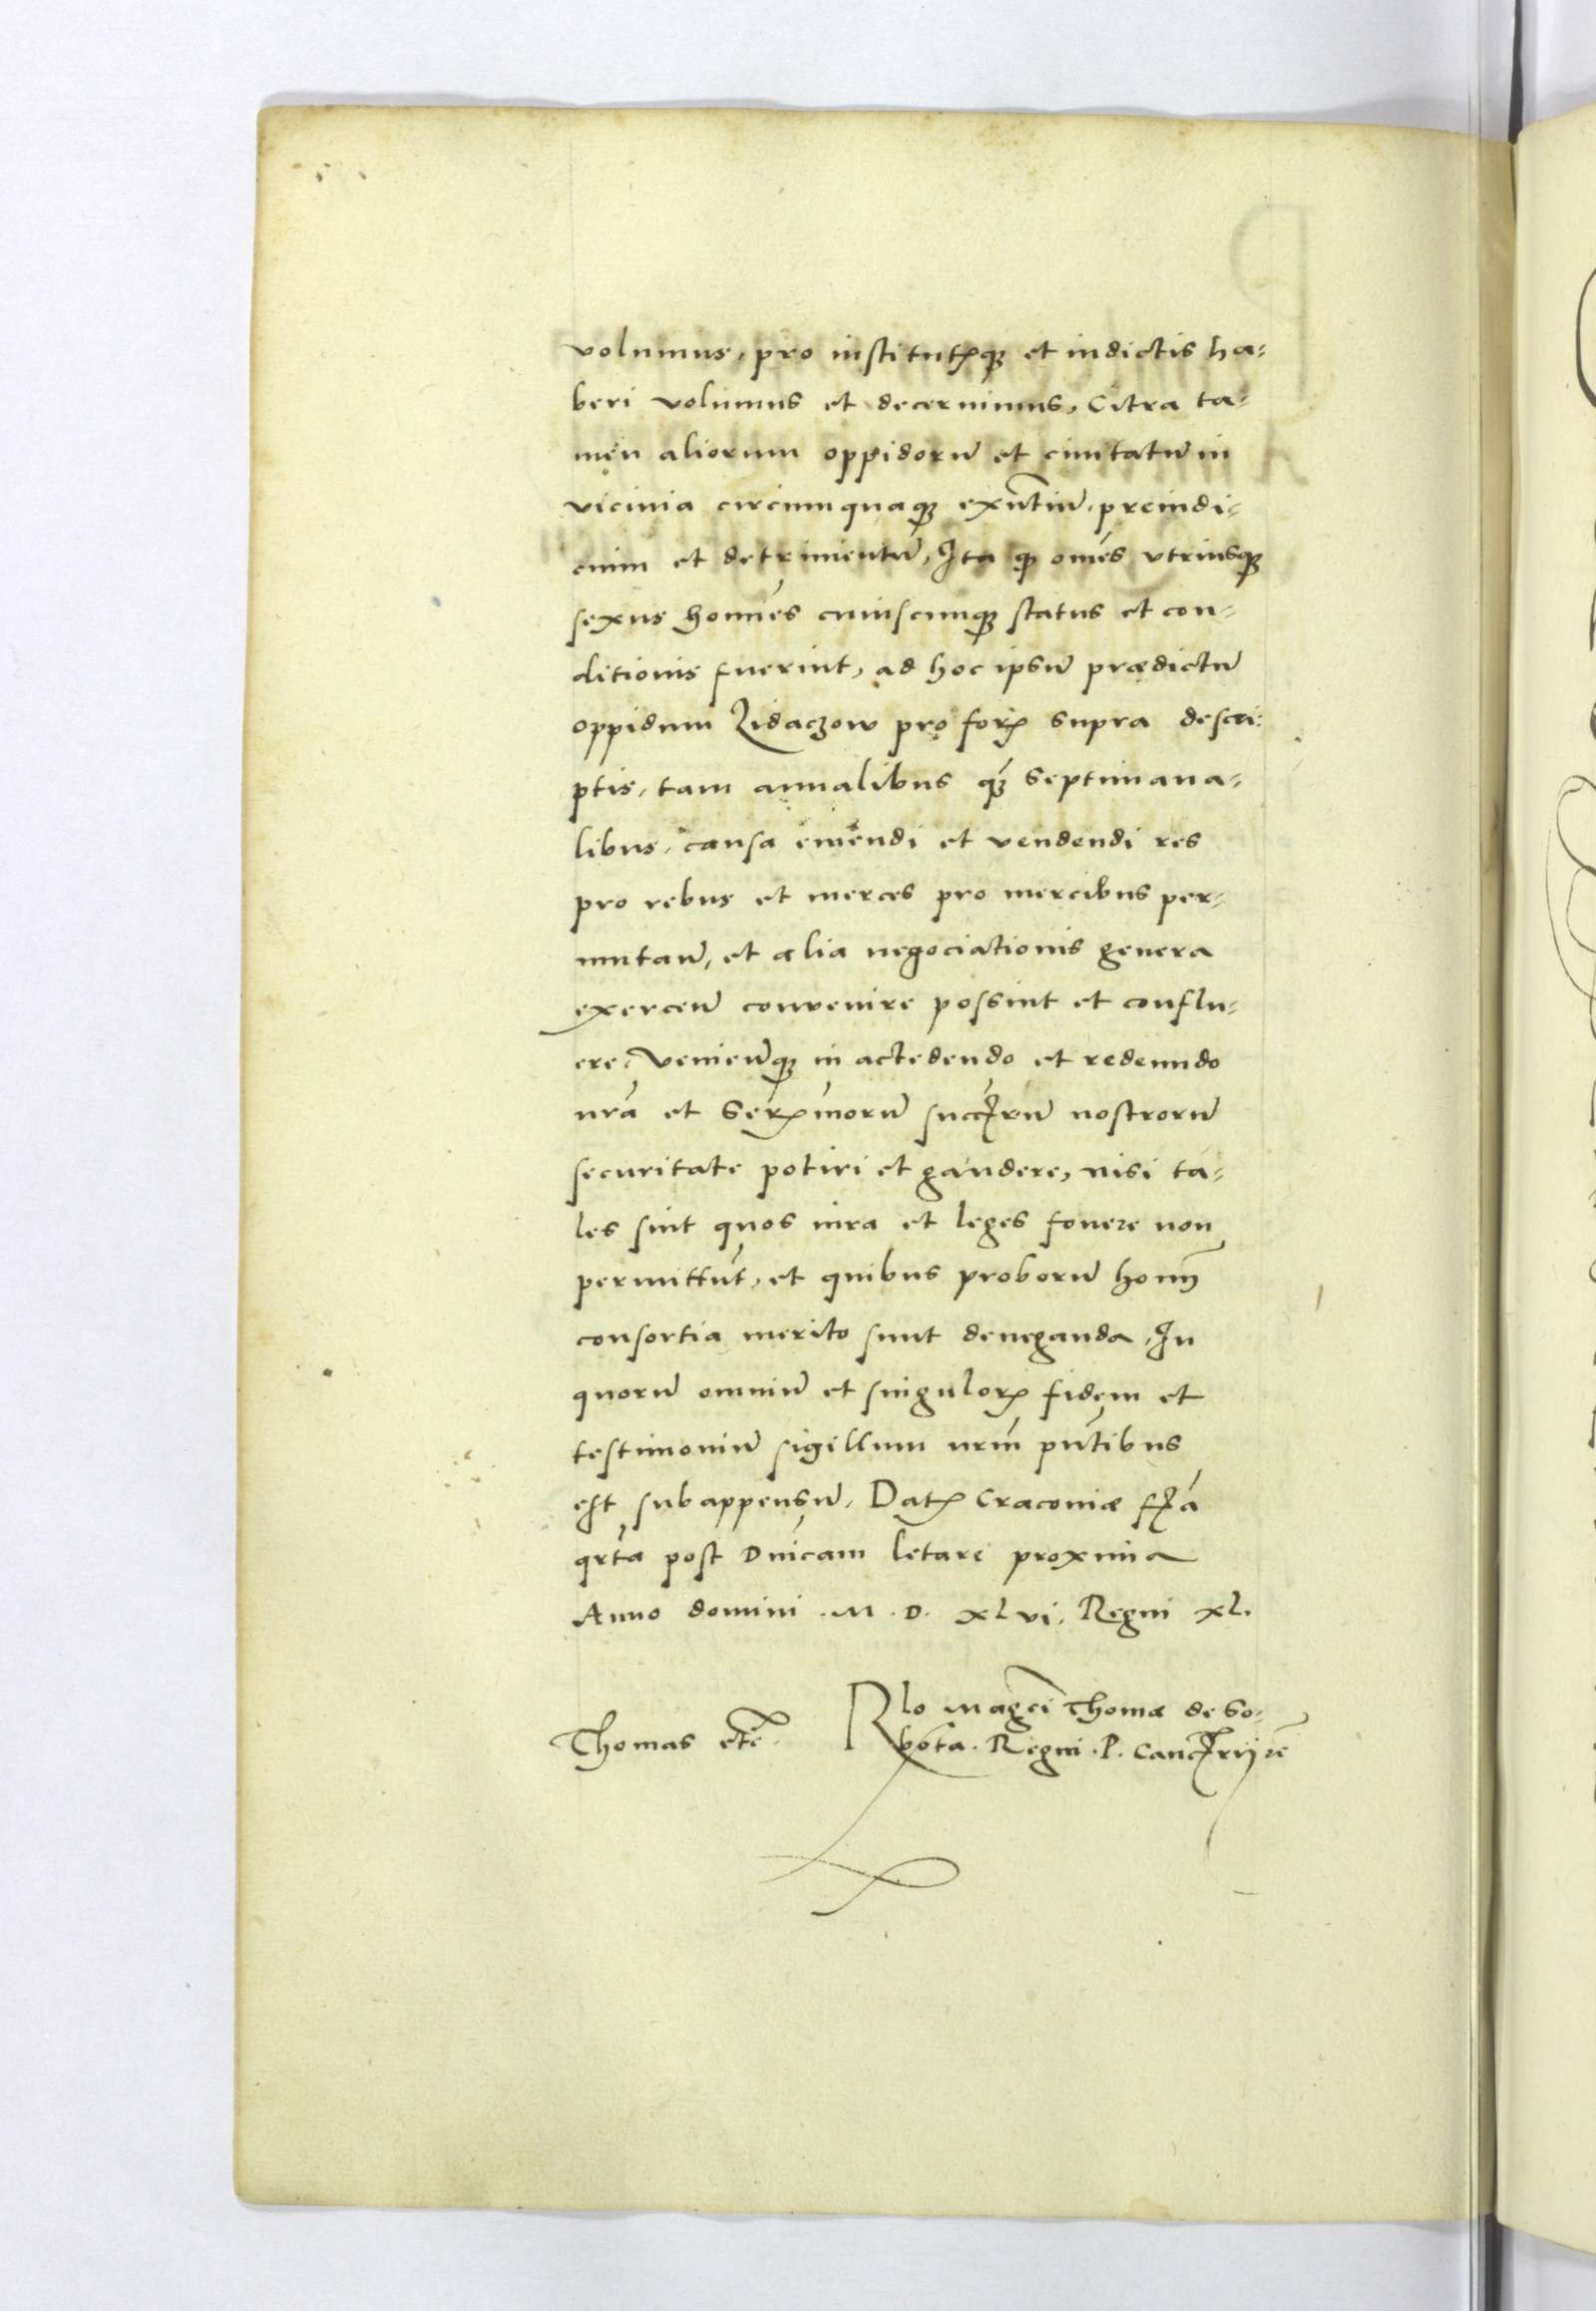 volumus, pro institutꝭqꝫ et indictis ha-
beri volumus et decernimus, Citra ta-
men aliorum oppidorū et ciuitatū in
vicinia circumquaqꝫ exn̄tiū preiudi-
cium et detrimentū, Ita ꝙ om̄es vtriusqꝫ
sexus homīes cuiuscunqꝫ status et con-
ditionis fuerint, ad hoc ipsū prædictū
oppidum Zidaczow pro forꝭ supra descri-
ptis, tam annalibus qꝫ̄ septimana-
libus, causa emendi et vendendi res
pro rebus et merces pro mercibus per-
mutan̄, et alia negociationis genera
exercen̄ convenire possint et conflu-
ere, Venien̄qꝫ in accedendo et redeundo
nr̄a et Serꝭmorū succꝭrū nostrorū
securitate potiri et gaudere, nisi ta-
les sint quos iura et leges fouere non
permittūt, et quibus proborū homī
consortia merito sunt deneganda. In
quorū omniū et singulorꝝ fidem et
testimoniū sigillum nrm̄ pn̄tibus
est subappensū. Datꝭ Cracouiæ fꝭa
qrta post Dn̄icam letare proxima
Anno domini .M.D. xlvi. Regni xl.
Thomas etc̄.
Rlo Magci Thomæ de So-
bota. Regni .P. Cancꝭrij rē